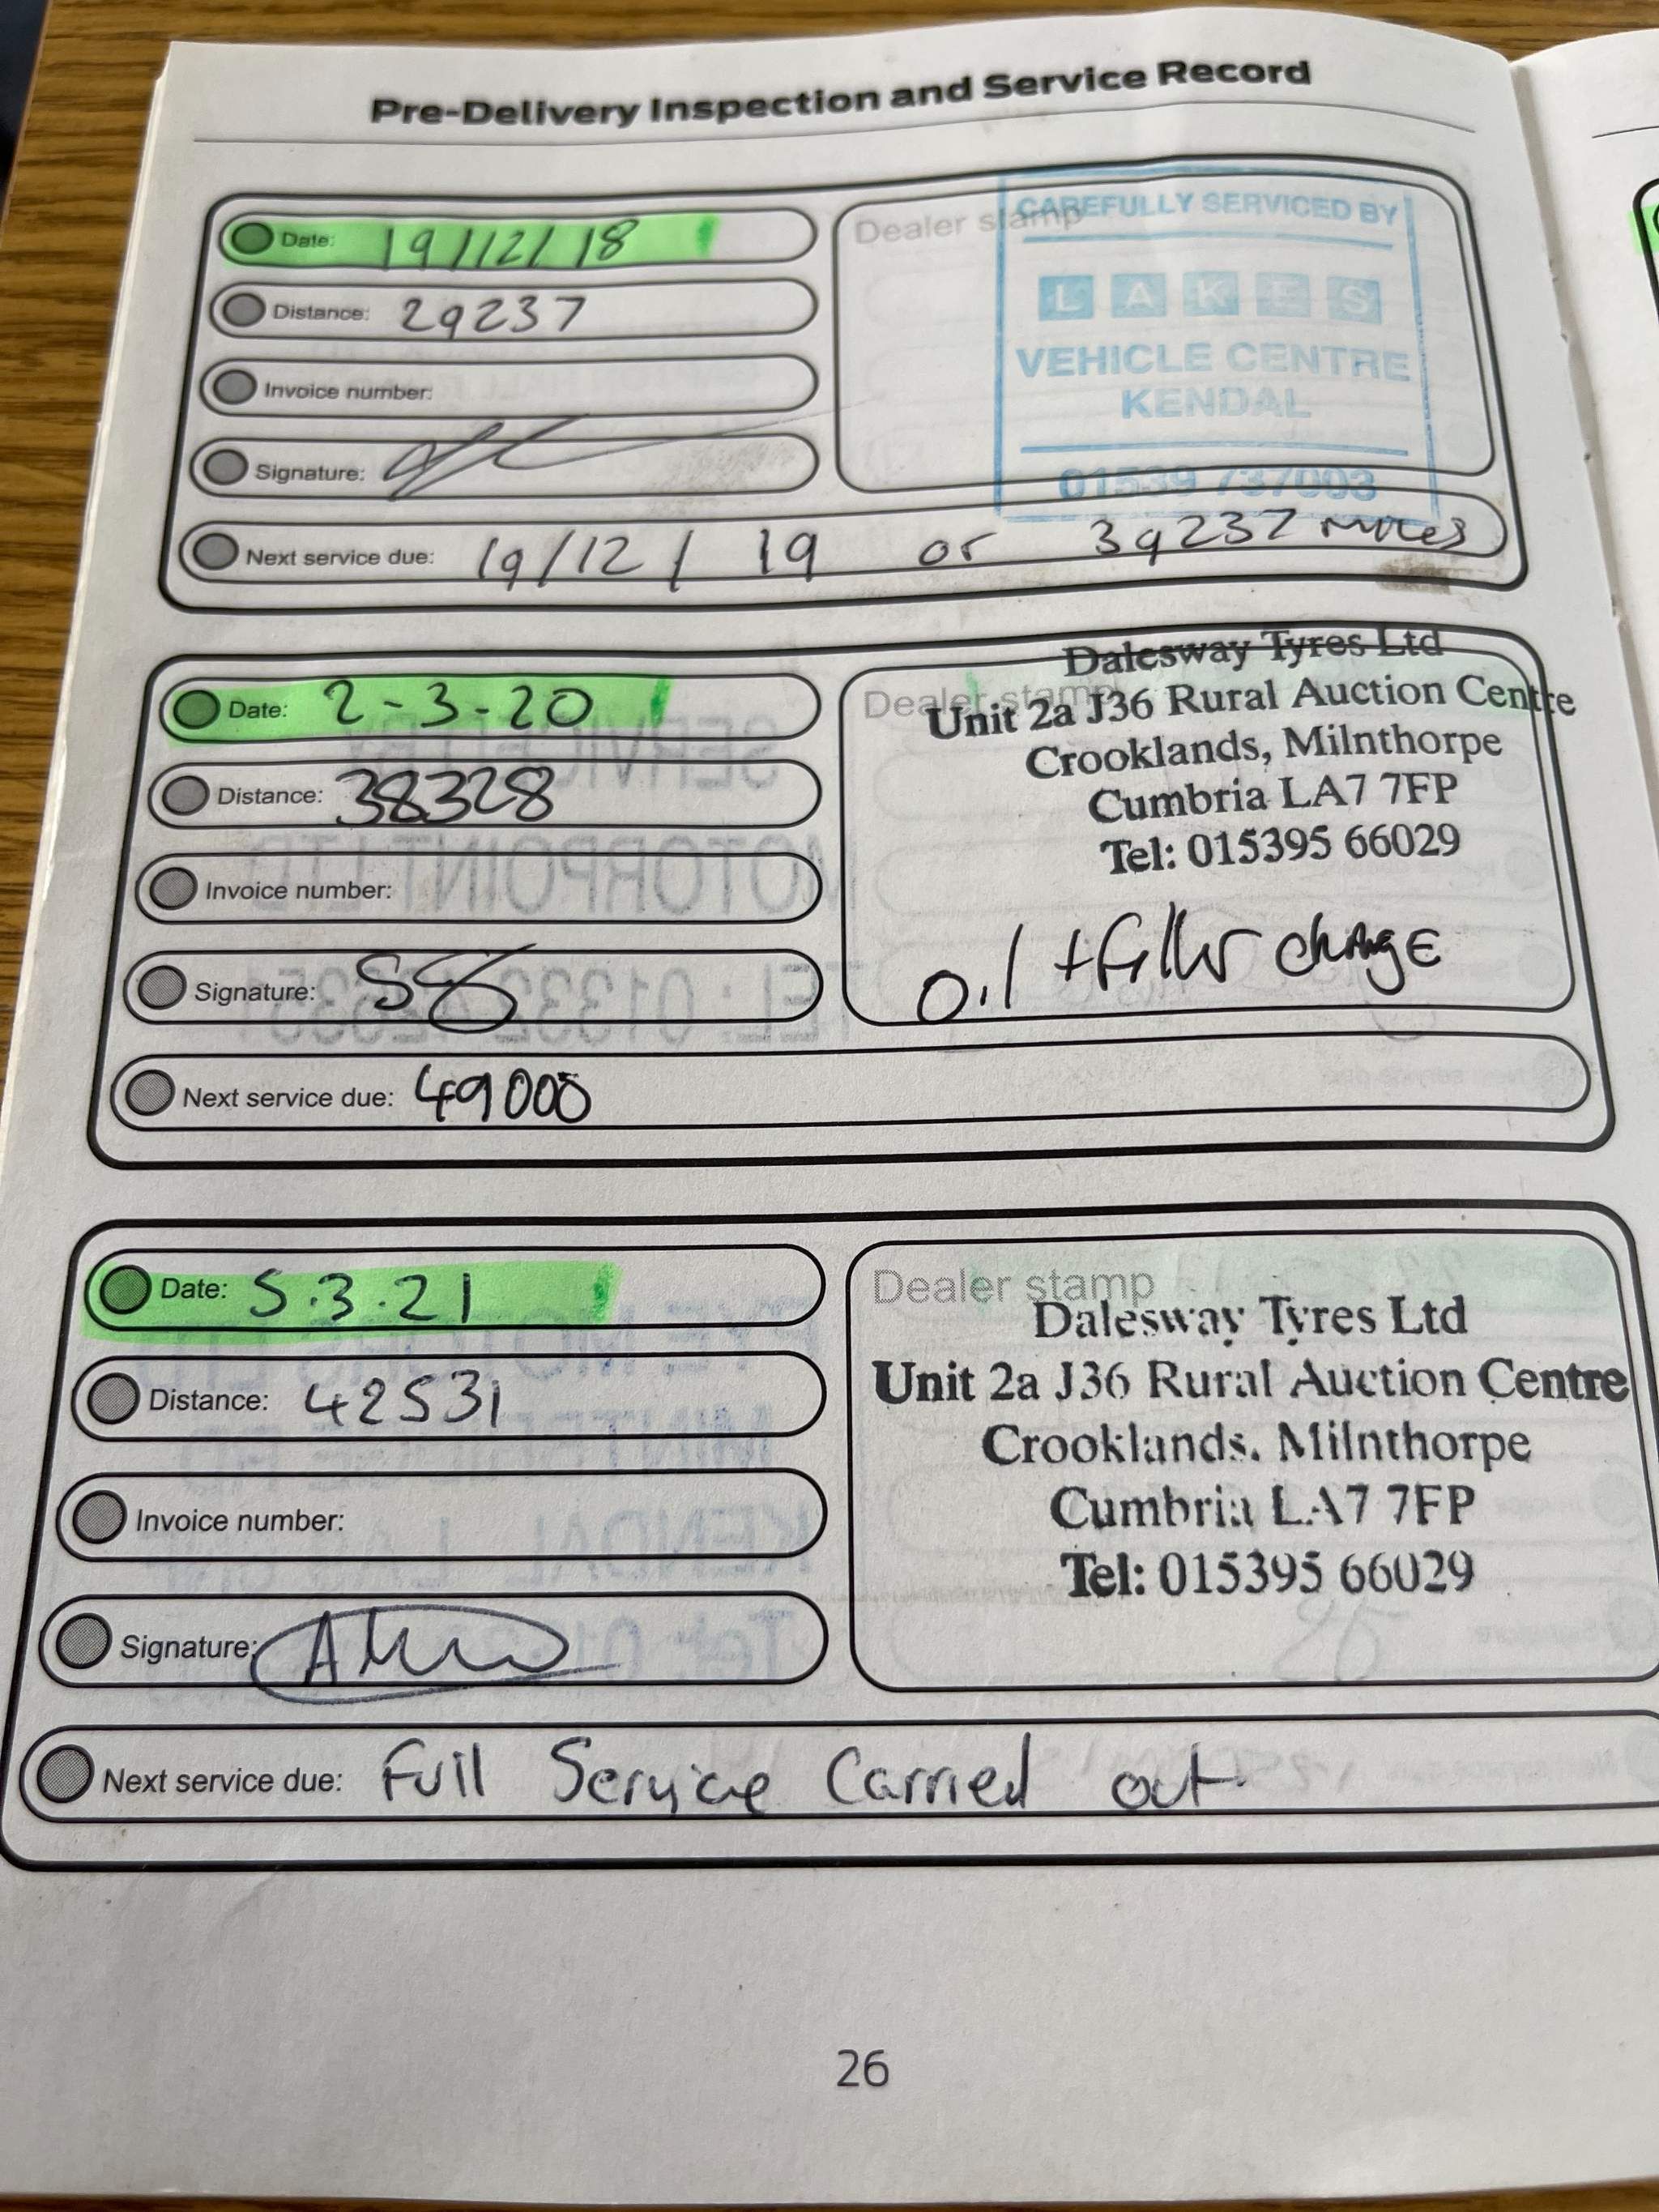 Pre-Delivery Inspection and Service Record
Date: 19/12/18
Distance: 29237
Invoice number:
Signature:
Dealer stamp
CAREFULLY SERVICED BY
LAKES
VEHICLE CENTRE
KENDAL
01539 737003
Next service due: 19/12/19 or 39237 miles
Date: 2-3-20
Distance: 38328
Invoice number:
Signature:
Dealer stamp
Dalesway Tyres Ltd
Unit 2a J36 Rural Auction Centre
Crooklands, Milnthorpe
Cumbria LA7 7FP
Tel: 015395 66029
Oil + filter change
Next service due: 49000
Date: 5.3.21
Distance: 42531
Invoice number:
Signature:
Dealer stamp
Dalesway Tyres Ltd
Unit 2a J36 Rural Auction Centre
Crooklands, Milnthorpe
Cumbria LA7 7FP
Tel: 015395 66029
Next service due: Full Service Carried out.
26